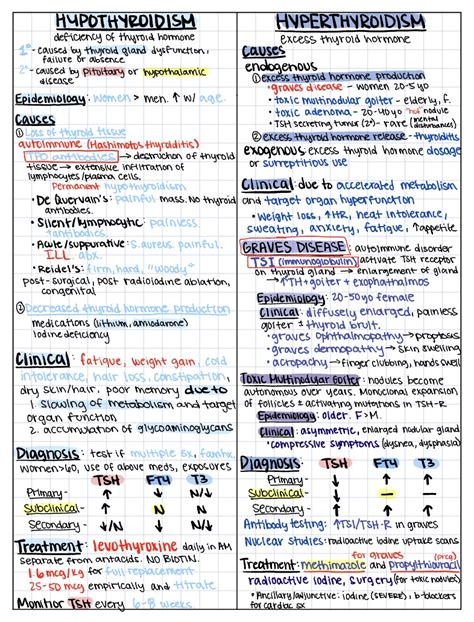 HYPOTHYROIDISM
deficiency of thyroid hormone
1°- caused by thyroid gland dysfunction,
failure or absence
2°- caused by pituitary or hypothalamic
disease
Epidemiology: women > men. ↑ w/ age.
Causes
① Loss of thyroid tissue
autoimmune (Hashimotos thyroiditis)
TPO antibodies → destruction of thyroid
tissue → extensive infiltration of
lymphocytes/plasma cells.
Permanent hypothyroidism
• De Quervain's: painful mass. No thyroid
antibodies.
• Silent/lymphocytic: painless
↑ antibodies.
• Acute/suppurative: S.aureus. painful.
ILL. abx.
• Reidel's: firm, hard, "woody"
post-surgical, post radioiodine ablation,
congenital
② Decreased thyroid hormone production
medications (lithium, amiodarone)
Iodine deficiency
Clinical: fatigue, weight gain, cold
intolerance, hair loss, constipation,
dry skin/hair. poor memory due to
1. slowing of metabolism and target
organ function
2. accumulation of glycoaminoglycans
Diagnosis: test if multiple sx, famhx,
women>60, use of above meds, exposures
TSH FT4 T3
Primary- ↑ ↓ N/↓
Subclinical- ↑ N N
Secondary- ↓/N ↓ ↓/N
Treatment: levothyroxine daily in AM
separate from antacids. NO BIOTIN.
1.6 mcg/kg for full replacement
25-50 mcg empirically and titrate
Monitor TSH every 6-8 weeks.
HYPERTHYROIDISM
Excess thyroid hormone
Causes
endogenous
① excess thyroid hormone production
• graves disease - women 20-50yo
• toxic multinodular goiter - elderly, f.
• toxic adenoma - 20-40yo "hot" nodule
• TSH secreting tumor (2°)- rare (mental disturbances)
② excess thyroid hormone release - thyroiditis
exogenous: excess thyroid hormone dosage
or surreptitious use
Clinical: due to accelerated metabolism
and target organ hyperfunction
• Weight loss, ↑HR, heat intolerance,
sweating, anxiety, fatigue, ↑appetite
GRAVES DISEASE: autoimmune disorder
TSI (immunoglobulin) activate TSH receptor
on thyroid gland → enlargement of gland
→ ↑TH + goiter + exophthalmos
Epidemiology: 20-50yo female
Clinical: diffusely enlarged, painless
goiter ± thyroid bruit.
• graves ophthalmopathy → proptosis
• graves dermopathy → skin swelling
• acropachy → finger clubbing, hands swell
Toxic Multinodular Goiter: nodules become
autonomous over years. Monoclonal expansion
of follicles & activating mutations in TSH-R
Epidemiology: older. F>M.
Clinical: asymmetric, enlarged nodular gland
• compressive symptoms (dyspnea, dysphasia)
Diagnosis: TSH FT4 T3
Primary- ↓ ↑ ↑
Subclinical- ↓ — —
Secondary- ↑ ↑ ↑
Antibody testing: ↑TSI/TSH-R in graves
Nuclear studies: radioactive iodine uptake scans
for graves (preg)
Treatment: methimazole and propylthiouracil
radioactive iodine, surgery (for toxic nodules)
• Ancillary/adjunctive: iodine (SEVERE), b-blockers
for cardiac sx